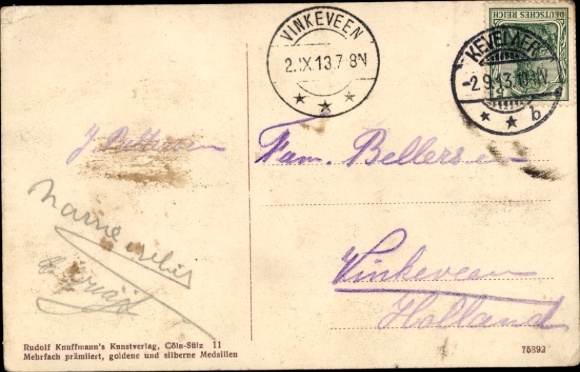 VINKEVEEN
2.IX.13.7-8N
DEUTSCHES REICH
KEVELAER
-2.9.13.
* * b
Fam. Bellersen
Vinkeveen
Holland
Rudolf Knuffmann's Kunstverlag, Cöln-Sülz 11
Mehrfach prämiiert, goldene und silberne Medaillen
75893